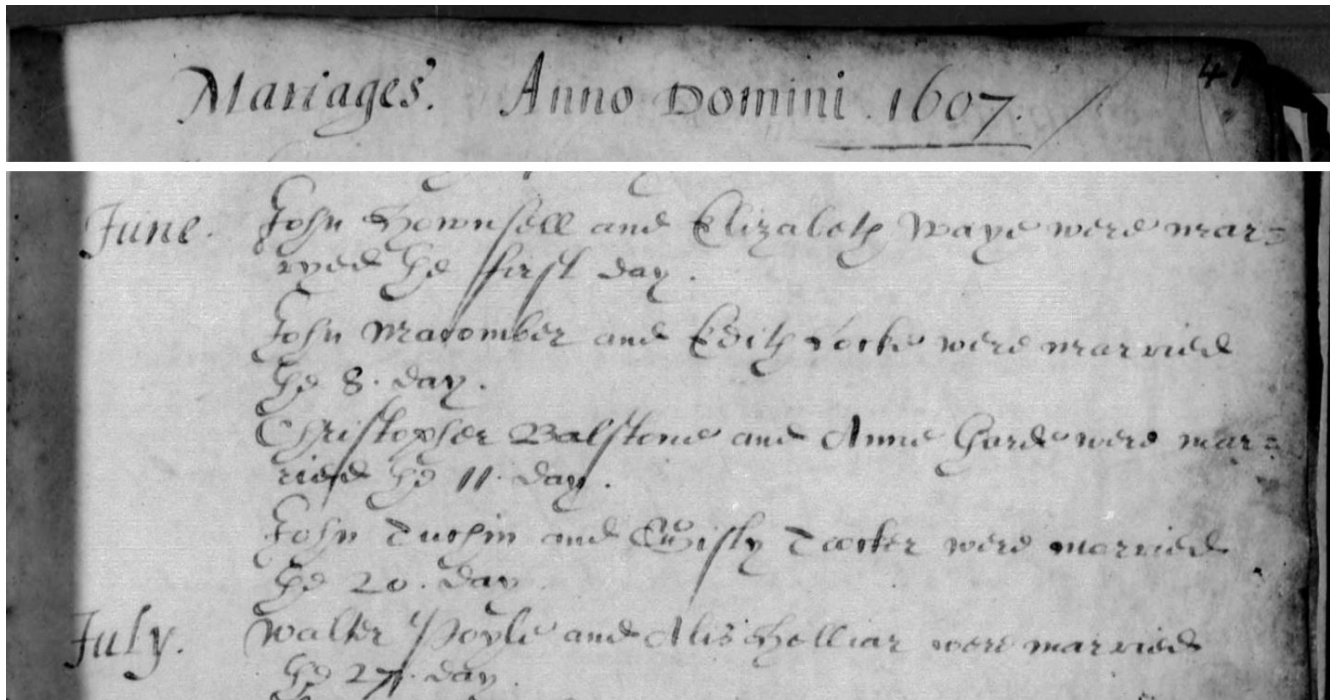 Mariages. Anno Domini. 1607.
41
June. John Hownsell and Elizabeth Waye were mar=
ryed the first day.
John Macomber and Edith Cocke were married
the 8. day.
Christopher Balstone and Anne Gard were mar=
ried the 11. day.
John Turpin and Tooker were married
the 20. day.
July. Walter Poyle and Alis Helliar were married
the 27. day.